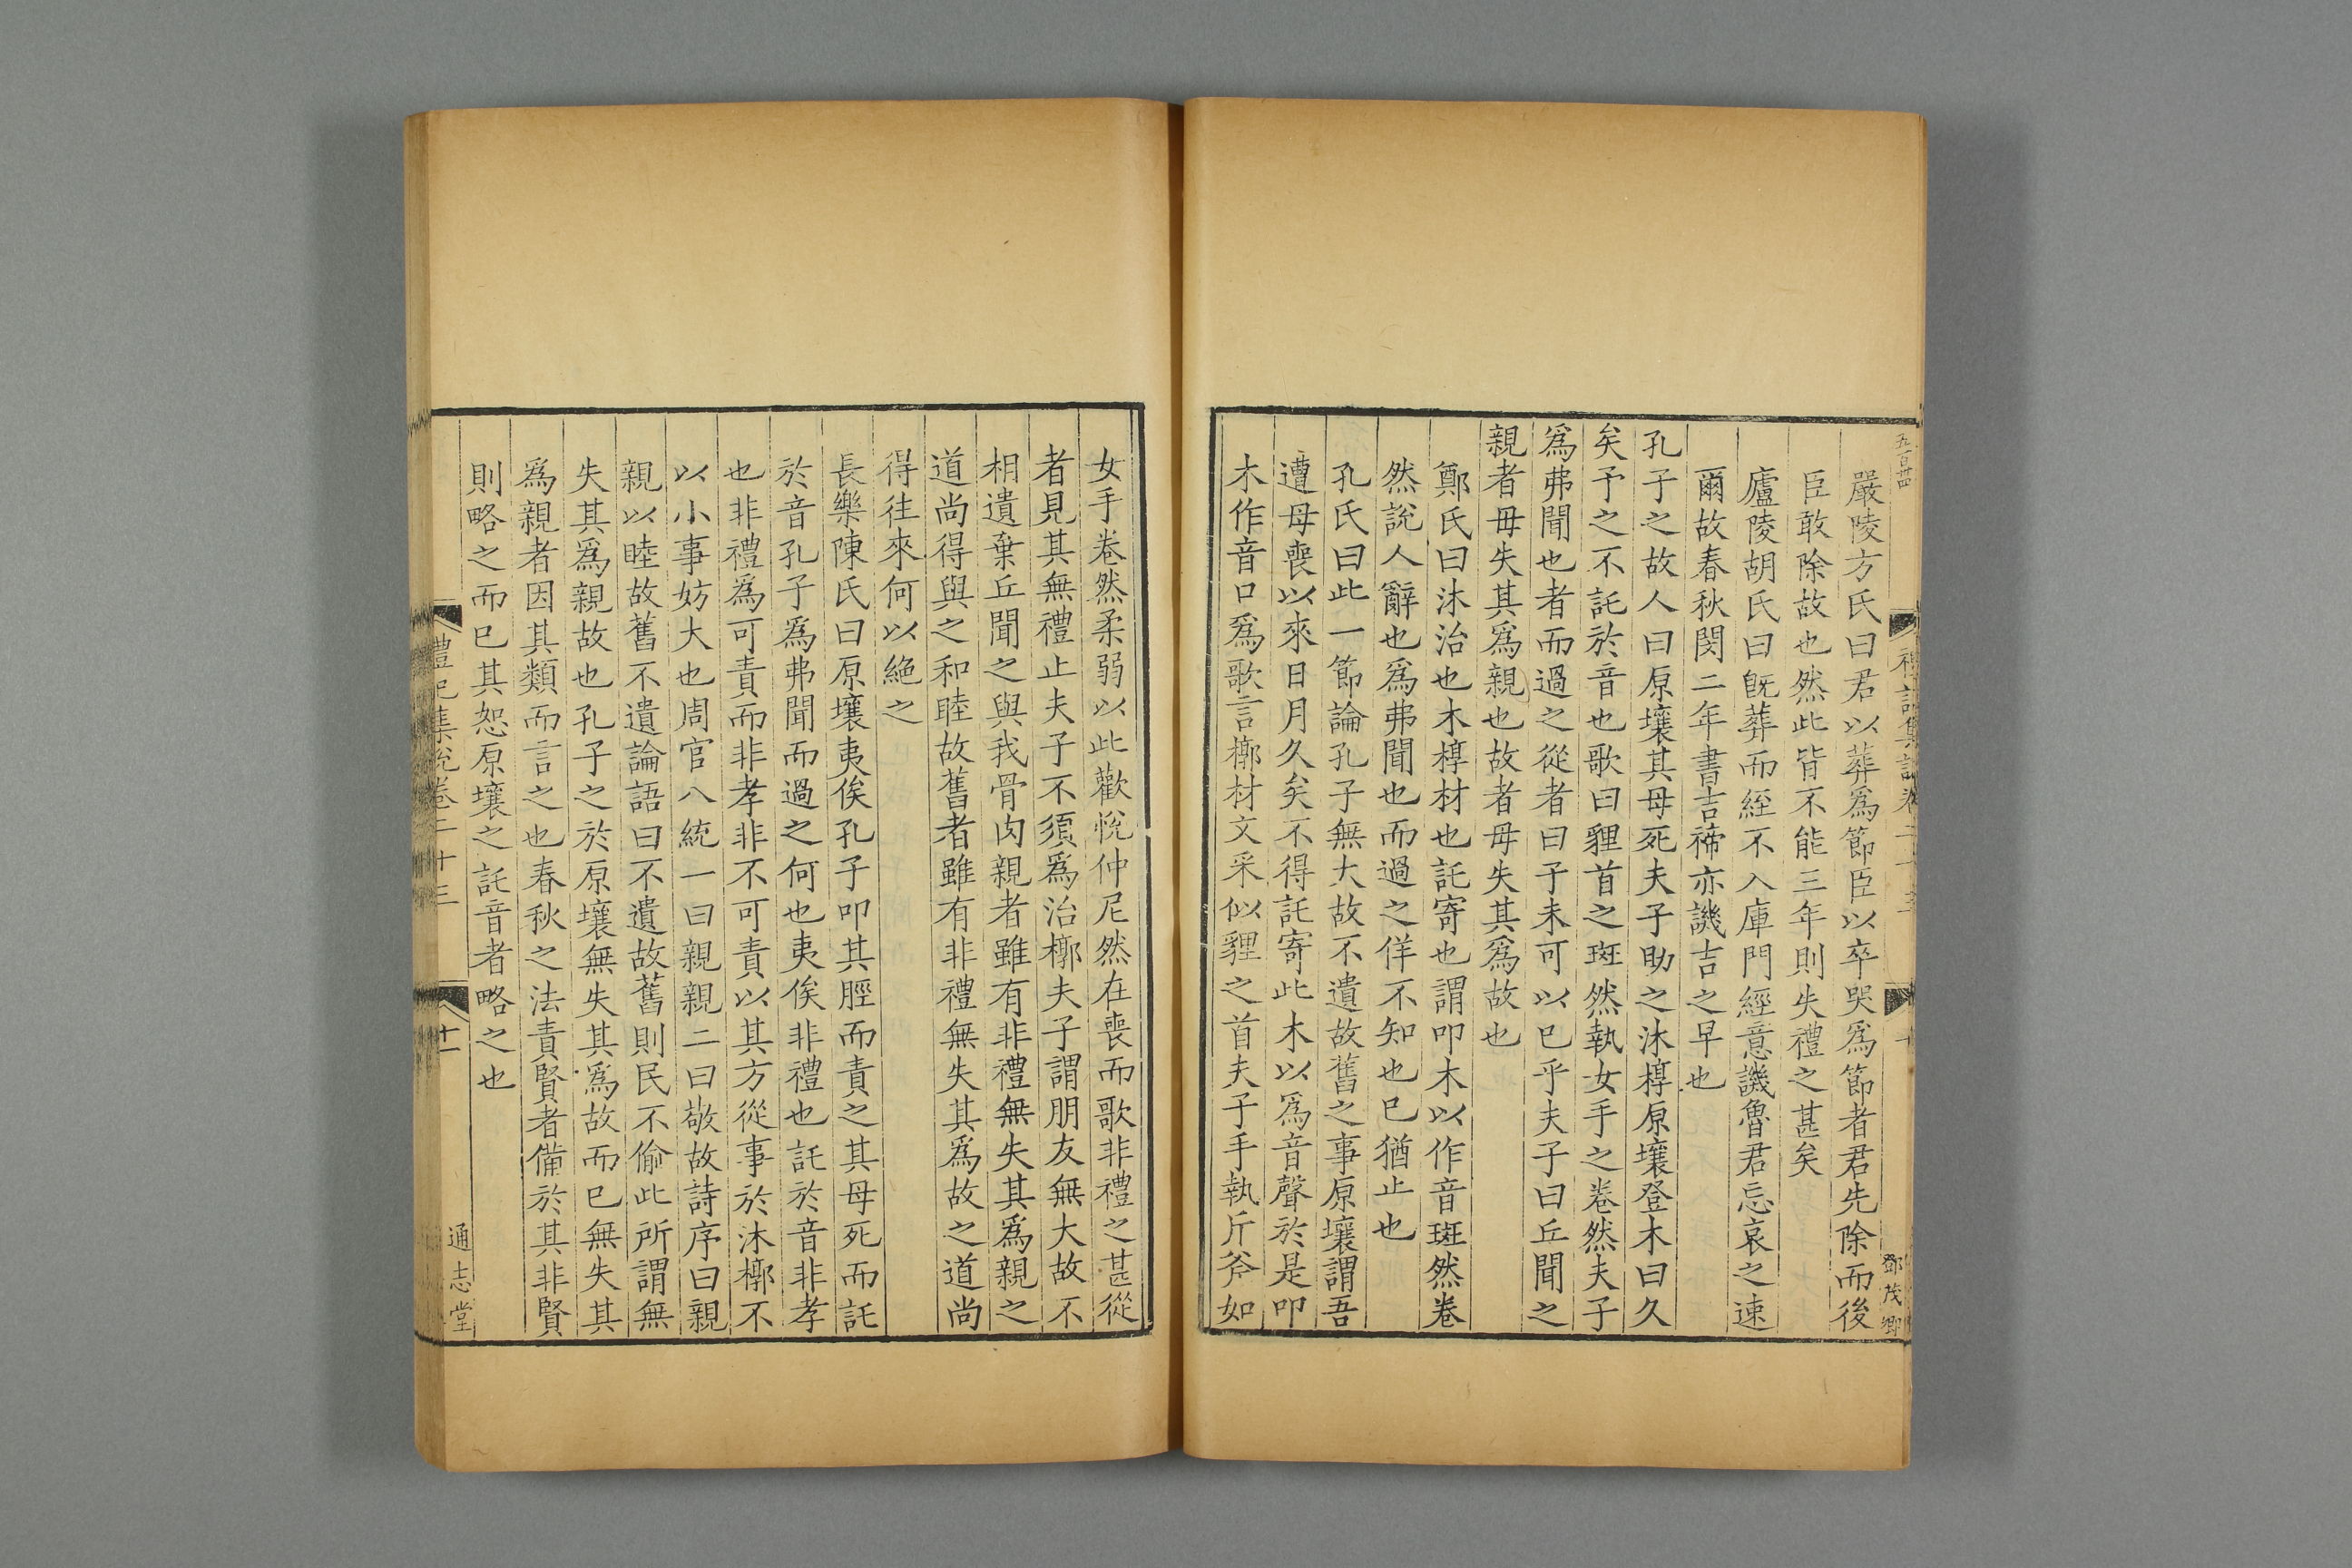 五百四
禮記集說卷二十三
十
鄧茂卿
嚴陵方氏曰君以葬爲節臣以卒哭爲節者君先除而後
臣敢除故也然此皆不能三年則失禮之甚矣
廬陵胡氏曰旣葬而絰不入庫門經意譏魯君忘哀之速
爾故春秋閔二年書吉禘亦譏吉之早也
孔子之故人曰原壤其母死夫子助之沐椁原壤登木曰久
矣予之不託於音也歌曰貍首之斑然執女手之卷然夫子
爲弗聞也者而過之從者曰子未可以已乎夫子曰丘聞之
親者毋失其爲親也故者毋失其爲故也
鄭氏曰沐治也木椁材也託寄也謂叩木以作音斑然卷
然說人辭也爲弗聞也而過之佯不知也已猶止也
孔氏曰此一節論孔子無大故不遺故舊之事原壤謂吾
遭母喪以來日月久矣不得託寄此木以爲音聲於是叩
木作音口爲歌言槨材文采似貍之首夫子手執斤斧如
女手卷然柔弱以此歡悅仲尼然在喪而歌非禮之甚從
者見其無禮止夫子不須爲治槨夫子謂朋友無大故不
相遺棄丘聞之與我骨肉親者雖有非禮無失其爲親之
道尚得與之和睦故舊者雖有非禮無失其爲故之道尚
得往來何以絕之
長樂陳氏曰原壤夷俟孔子叩其脛而責之其母死而託
於音孔子爲弗聞而過之何也夷俟非禮也託於音非孝
也非禮爲可責而非孝非不可責以其方從事於沐槨不
以小事妨大也周官八統一曰親親二曰敬故詩序曰親
親以睦故舊不遺論語曰不遺故舊則民不偷此所謂無
失其爲親故也孔子之於原壤無失其爲故而已無失其
爲親者因其類而言之也春秋之法責賢者備於其非賢
則略之而已其恕原壤之託音者略之也
禮記集說卷二十三
十一
通志堂